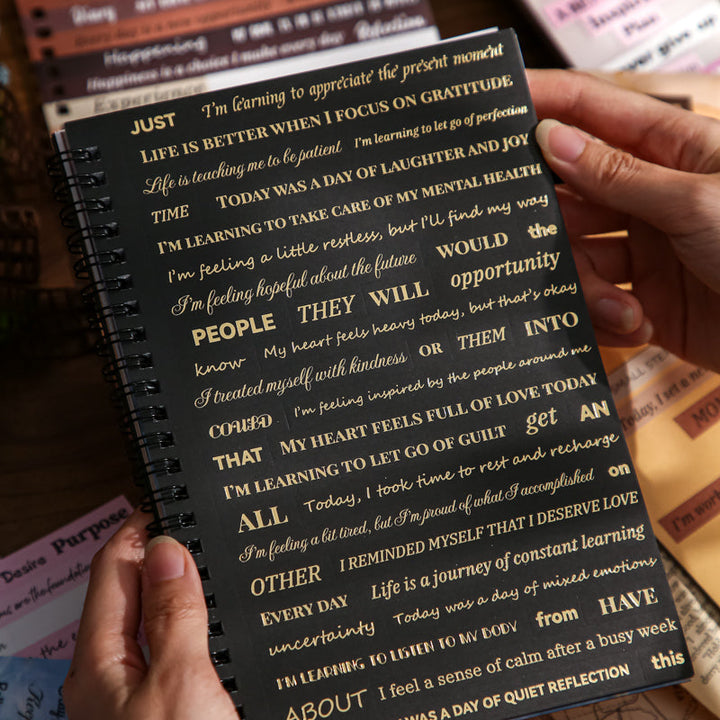 Diary
Every day is a new opportunity
Happening
Reflection
Happiness is a choice I make every day
Experience
JUST I'm learning to appreciate the present moment
LIFE IS BETTER WHEN I FOCUS ON GRATITUDE
Life is teaching me to be patient I'm learning to let go of perfection
TIME TODAY WAS A DAY OF LAUGHTER AND JOY
I'M LEARNING TO TAKE CARE OF MY MENTAL HEALTH
I'm feeling a little restless, but I'll find my way
I'm feeling hopeful about the future WOULD the
PEOPLE THEY WILL opportunity
know My heart feels heavy today, but that's okay
I treated myself with kindness OR THEM INTO
COULD I'm feeling inspired by the people around me
THAT MY HEART FEELS FULL OF LOVE TODAY
I'M LEARNING TO LET GO OF GUILT get AN
ALL Today, I took time to rest and recharge
I'm feeling a bit tired, but I'm proud of what I accomplished on
OTHER I REMINDED MYSELF THAT I DESERVE LOVE
EVERY DAY Life is a journey of constant learning
uncertainty Today was a day of mixed emotions
I'M LEARNING TO LISTEN TO MY BODY from HAVE
ABOUT I feel a sense of calm after a busy week
WAS A DAY OF QUIET REFLECTION this
Desire Purpose
are the foundation
Never give up
SMALL
Today, I set a
I'm